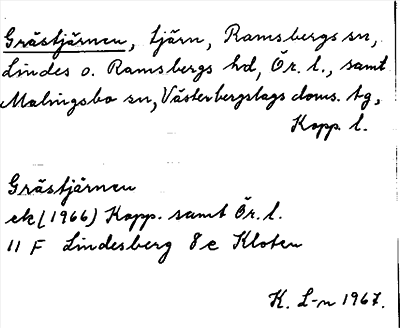 Gråstjärnen, tjärn, Ramsbergs sn,
Lindes o. Ramsbergs hd, Ör. l., samt
Malingsbo sn, Västerbergslags doms. tg,
Kopp. l.
Gråstjärnen
ek (1966) Kopp. samt Ör. l.
11 F Lindesberg 8e Kloten
K. L-n 1967.